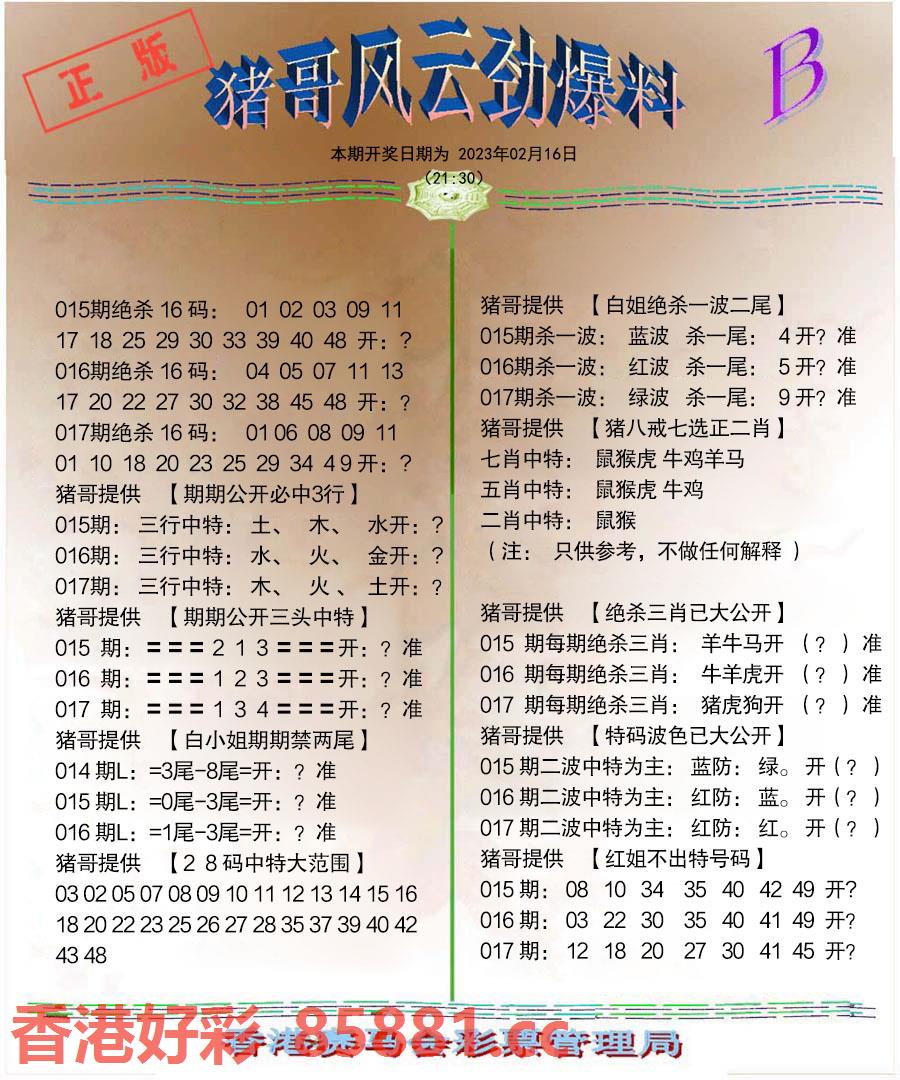 正版
猪哥风云劲爆料
B
本期开奖日期为 2023年02月16日
(21:30)
015期绝杀 16 码： 01 02 03 09 11
17 18 25 29 30 33 39 40 48 开：?
016期绝杀 16 码： 04 05 07 11 13
17 20 22 27 30 32 38 45 48 开：?
017期绝杀 16 码： 01 06 08 09 11
01 10 18 20 23 25 29 34 4 9 开：?
猪哥提供 【期期公开必中3行】
015期： 三行中特：土、 木、 水开：?
016期： 三行中特：水、 火、 金开：?
017期： 三行中特：木、 火 、 土开：?
猪哥提供 【期期公开三头中特】
015 期：===2 1 3===开：? 准
016 期：===1 2 3===开：? 准
017 期：===1 3 4===开：? 准
猪哥提供 【白小姐期期禁两尾】
014 期L：=3尾-8尾=开：? 准
015 期L：=0尾-3尾=开：? 准
016 期L：=1尾-3尾=开：? 准
猪哥提供 【2 8 码中特大范围】
03 02 05 07 08 09 10 11 12 13 14 15 16
18 20 22 23 25 26 27 28 35 37 39 40 42
43 48
猪哥提供 【白姐绝杀一波二尾】
015期杀一波： 蓝波 杀一尾： 4 开? 准
016期杀一波： 红波 杀一尾： 5 开? 准
017期杀一波： 绿波 杀一尾： 9 开? 准
猪哥提供 【猪八戒七选正二肖】
七肖中特： 鼠猴虎 牛鸡羊马
五肖中特： 鼠猴虎 牛鸡
二肖中特： 鼠猴
（注： 只供参考，不做任何解释 ）
猪哥提供 【绝杀三肖已大公开】
015 期每期绝杀三肖： 羊牛马开 （? ）准
016 期每期绝杀三肖： 牛羊虎开 （? ）准
017 期每期绝杀三肖： 猪虎狗开 （? ）准
猪哥提供 【特码波色已大公开】
015 期二波中特为主： 蓝防： 绿。 开（? ）
016 期二波中特为主： 红防： 蓝。 开（? ）
017 期二波中特为主： 红防： 红。 开（? ）
猪哥提供 【红姐不出特号码】
015 期： 08 10 34 35 40 42 49 开?
016 期： 03 22 30 35 40 41 49 开?
017 期： 12 18 20 27 30 41 45 开?
香港好彩 85881.cc
香港赛马会彩票管理局